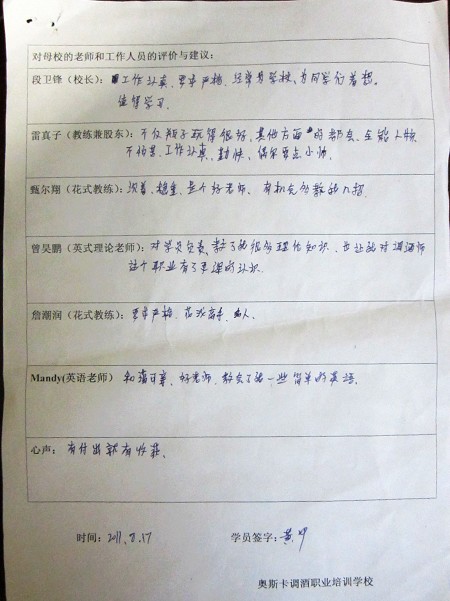 对母校的老师和工作人员的评价与建议:
段卫锋(校长): 工作认真、要求严格、经常为学校、为同学们着想。
值得学习。
雷真子(教练兼股东): 不仅瓶子玩得很好, 其他方面的都会、全能人物
不怕苦、工作认真、勤快、偶尔耍点小帅。
甄尔翔(花式教练): 沉着、稳重、是个好老师、有机会多教我几招
曾昊鹏(英式理论老师): 对学员负责、教了我很多理论知识、也让我对调酒师
这个职业有了更深的认识。
詹潮润(花式教练): 要求严格、花式高手、人。
Mandy(英语老师) 和蔼可亲、好老师、教会了我一些简单的英语。
心声: 有付出就有收获。
时间: 2011.8.17 学员签字: 黄
奥斯卡调酒职业培训学校